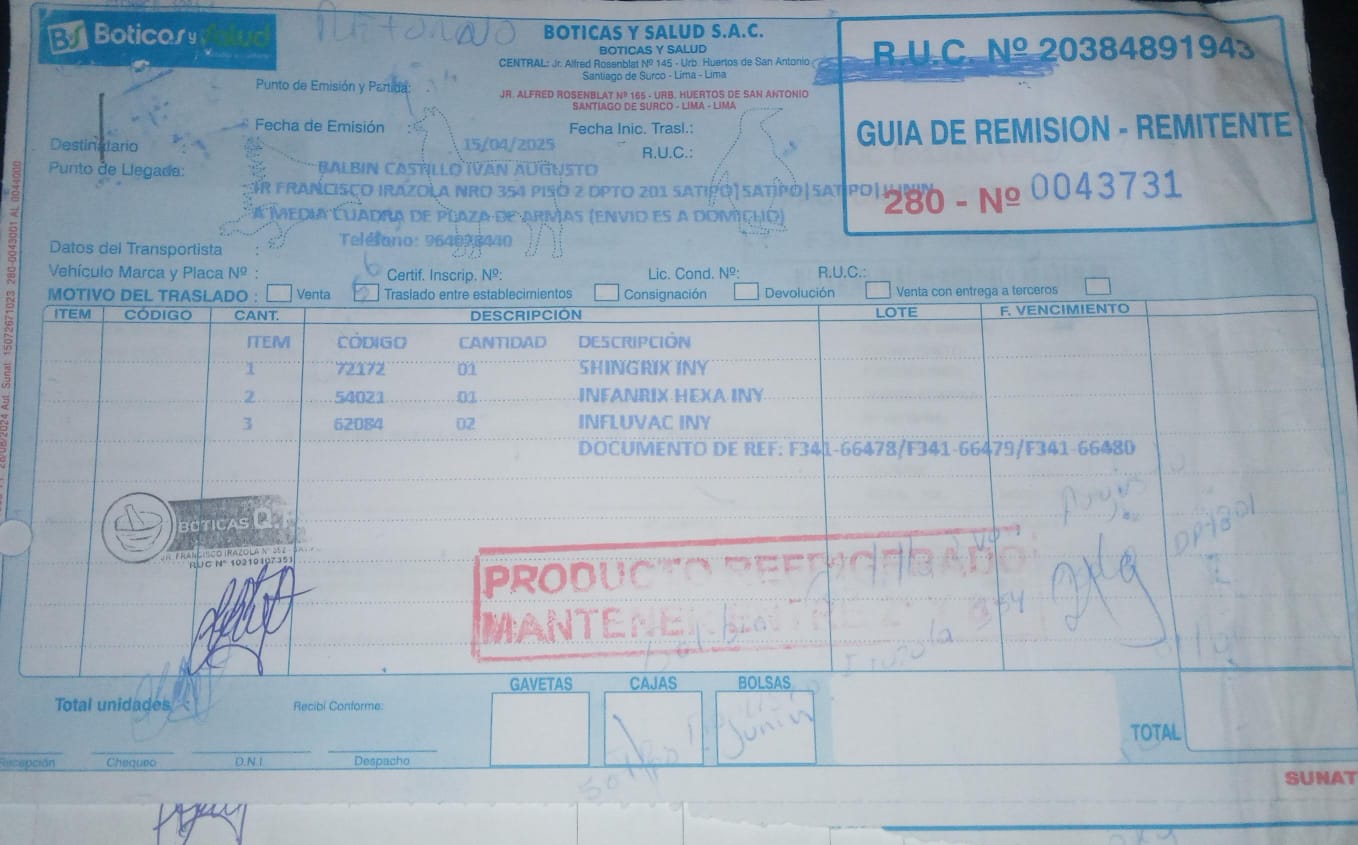 BS Boticas y Salud
BOTICAS Y SALUD S.A.C.
BOTICAS Y SALUD
CENTRAL: Jr. Alfred Rosenblat Nº 145 - Urb. Huertos de San Antonio
Santiago de Surco - Lima - Lima
JR. ALFRED ROSENBLAT Nº 165 - URB. HUERTOS DE SAN ANTONIO
SANTIAGO DE SURCO - LIMA - LIMA
R.U.C. Nº 20384891943
GUIA DE REMISION - REMITENTE
280 - Nº 0043731
Punto de Emisión y Partida:
Fecha de Emisión : 15/04/2025
Fecha Inic. Trasl.:
Destinatario : BALBIN CASTILLO IVAN AUGUSTO
R.U.C.:
Punto de Llegada: JR FRANCISCO IRAZOLA NRO 354 PISO 2 DPTO 201 SATIPO|SATIPO|SATIPO|JUNIN
A MEDIA CUADRA DE PLAZA DE ARMAS (ENVIO ES A DOMICILIO)
Teléfono: 964028440
Datos del Transportista :
Vehículo Marca y Placa Nº : Certif. Inscrip. Nº: Lic. Cond. Nº: R.U.C.:
MOTIVO DEL TRASLADO : Venta Traslado entre establecimientos Consignación Devolución Venta con entrega a terceros
ITEM CÓDIGO CANT. DESCRIPCIÓN LOTE F. VENCIMIENTO
ITEM CÓDIGO CANTIDAD DESCRIPCIÓN
1 72172 01 SHINGRIX INY
2 54021 01 INFANRIX HEXA INY
3 62084 02 INFLUVAC INY
DOCUMENTO DE REF: F341-66478/F341-66479/F341-66480
BOTICAS Q.F.
JR. FRANCISCO IRAZOLA Nº 352
PRODUCTO REFRIGERADO
MANTENER ENTRE 2
354
GAVETAS CAJAS BOLSAS
Junin
Total unidades :
Recibí Conforme:
TOTAL
Recepción Chequeo D.N.I. Despacho
SUNAT
280-0043001 AL 0044000